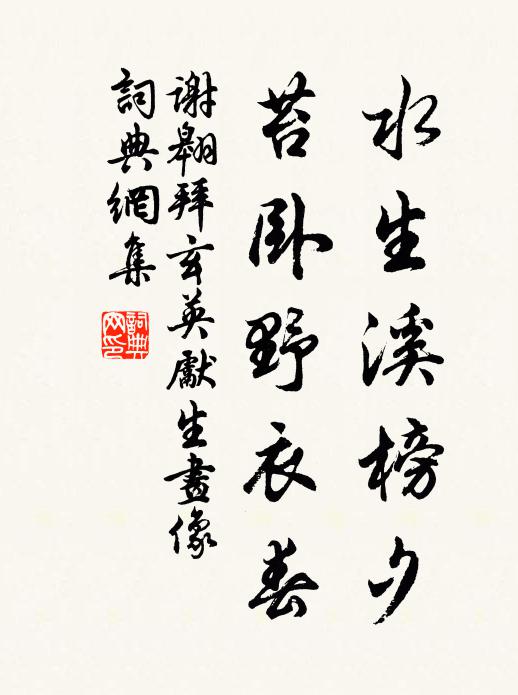 水生溪榜夕
苔卧野衣春
謝翱拜玄英處生畫像
詞典網集
詞典網印